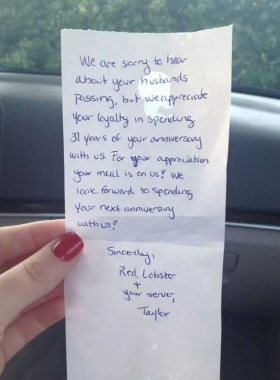 We are sorry to hear
about your husbands
passing, but we appreciate
your loyalty in spending
31 years of your anniversary
with us. For your appreciation
your meal is on us! We
look forward to spending
your next anniversary
with us!
Sincerely,
Red Lobster
+
your server,
Taylor